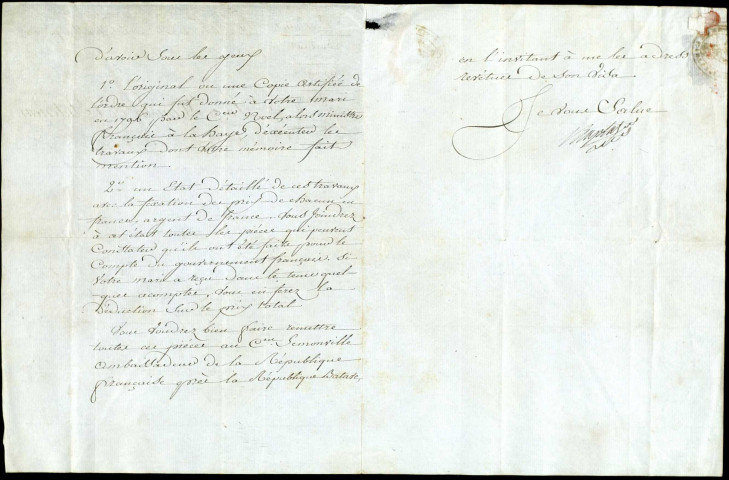 D'avoir sous les yeux
1.º L'original ou une Copie certifiée de
l'ordre qui fut donné à votre mari
en 1796 par le C.en Noel, alors ministre
française à la haye, d'exécuter les
travaux dont votre mémoire fait
mention.
2.º un Etat détaillé de ces travaux
avec la fixation des prix de chacun en
francs, argent de france. Vous joindrez
à cet état toutes les pièces qui peuvent
Constater qu'ils ont été faits pour le
Compte du gouvernement français. Si
Votre mari a reçu dans le tems quel-
ques acomptes, Vous en ferez la
Déduction sur le prix total.
Vous voudrez bien faire remettre
toutes ces pièces au C.en Semonville
ambassadeur de la République
française près la République Batave,
en l'invitant à me les adresser
revêtues de son Visa
Je vous Salue